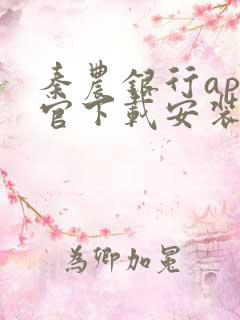 秦農銀行ap
官下載安裝
為卿加冕